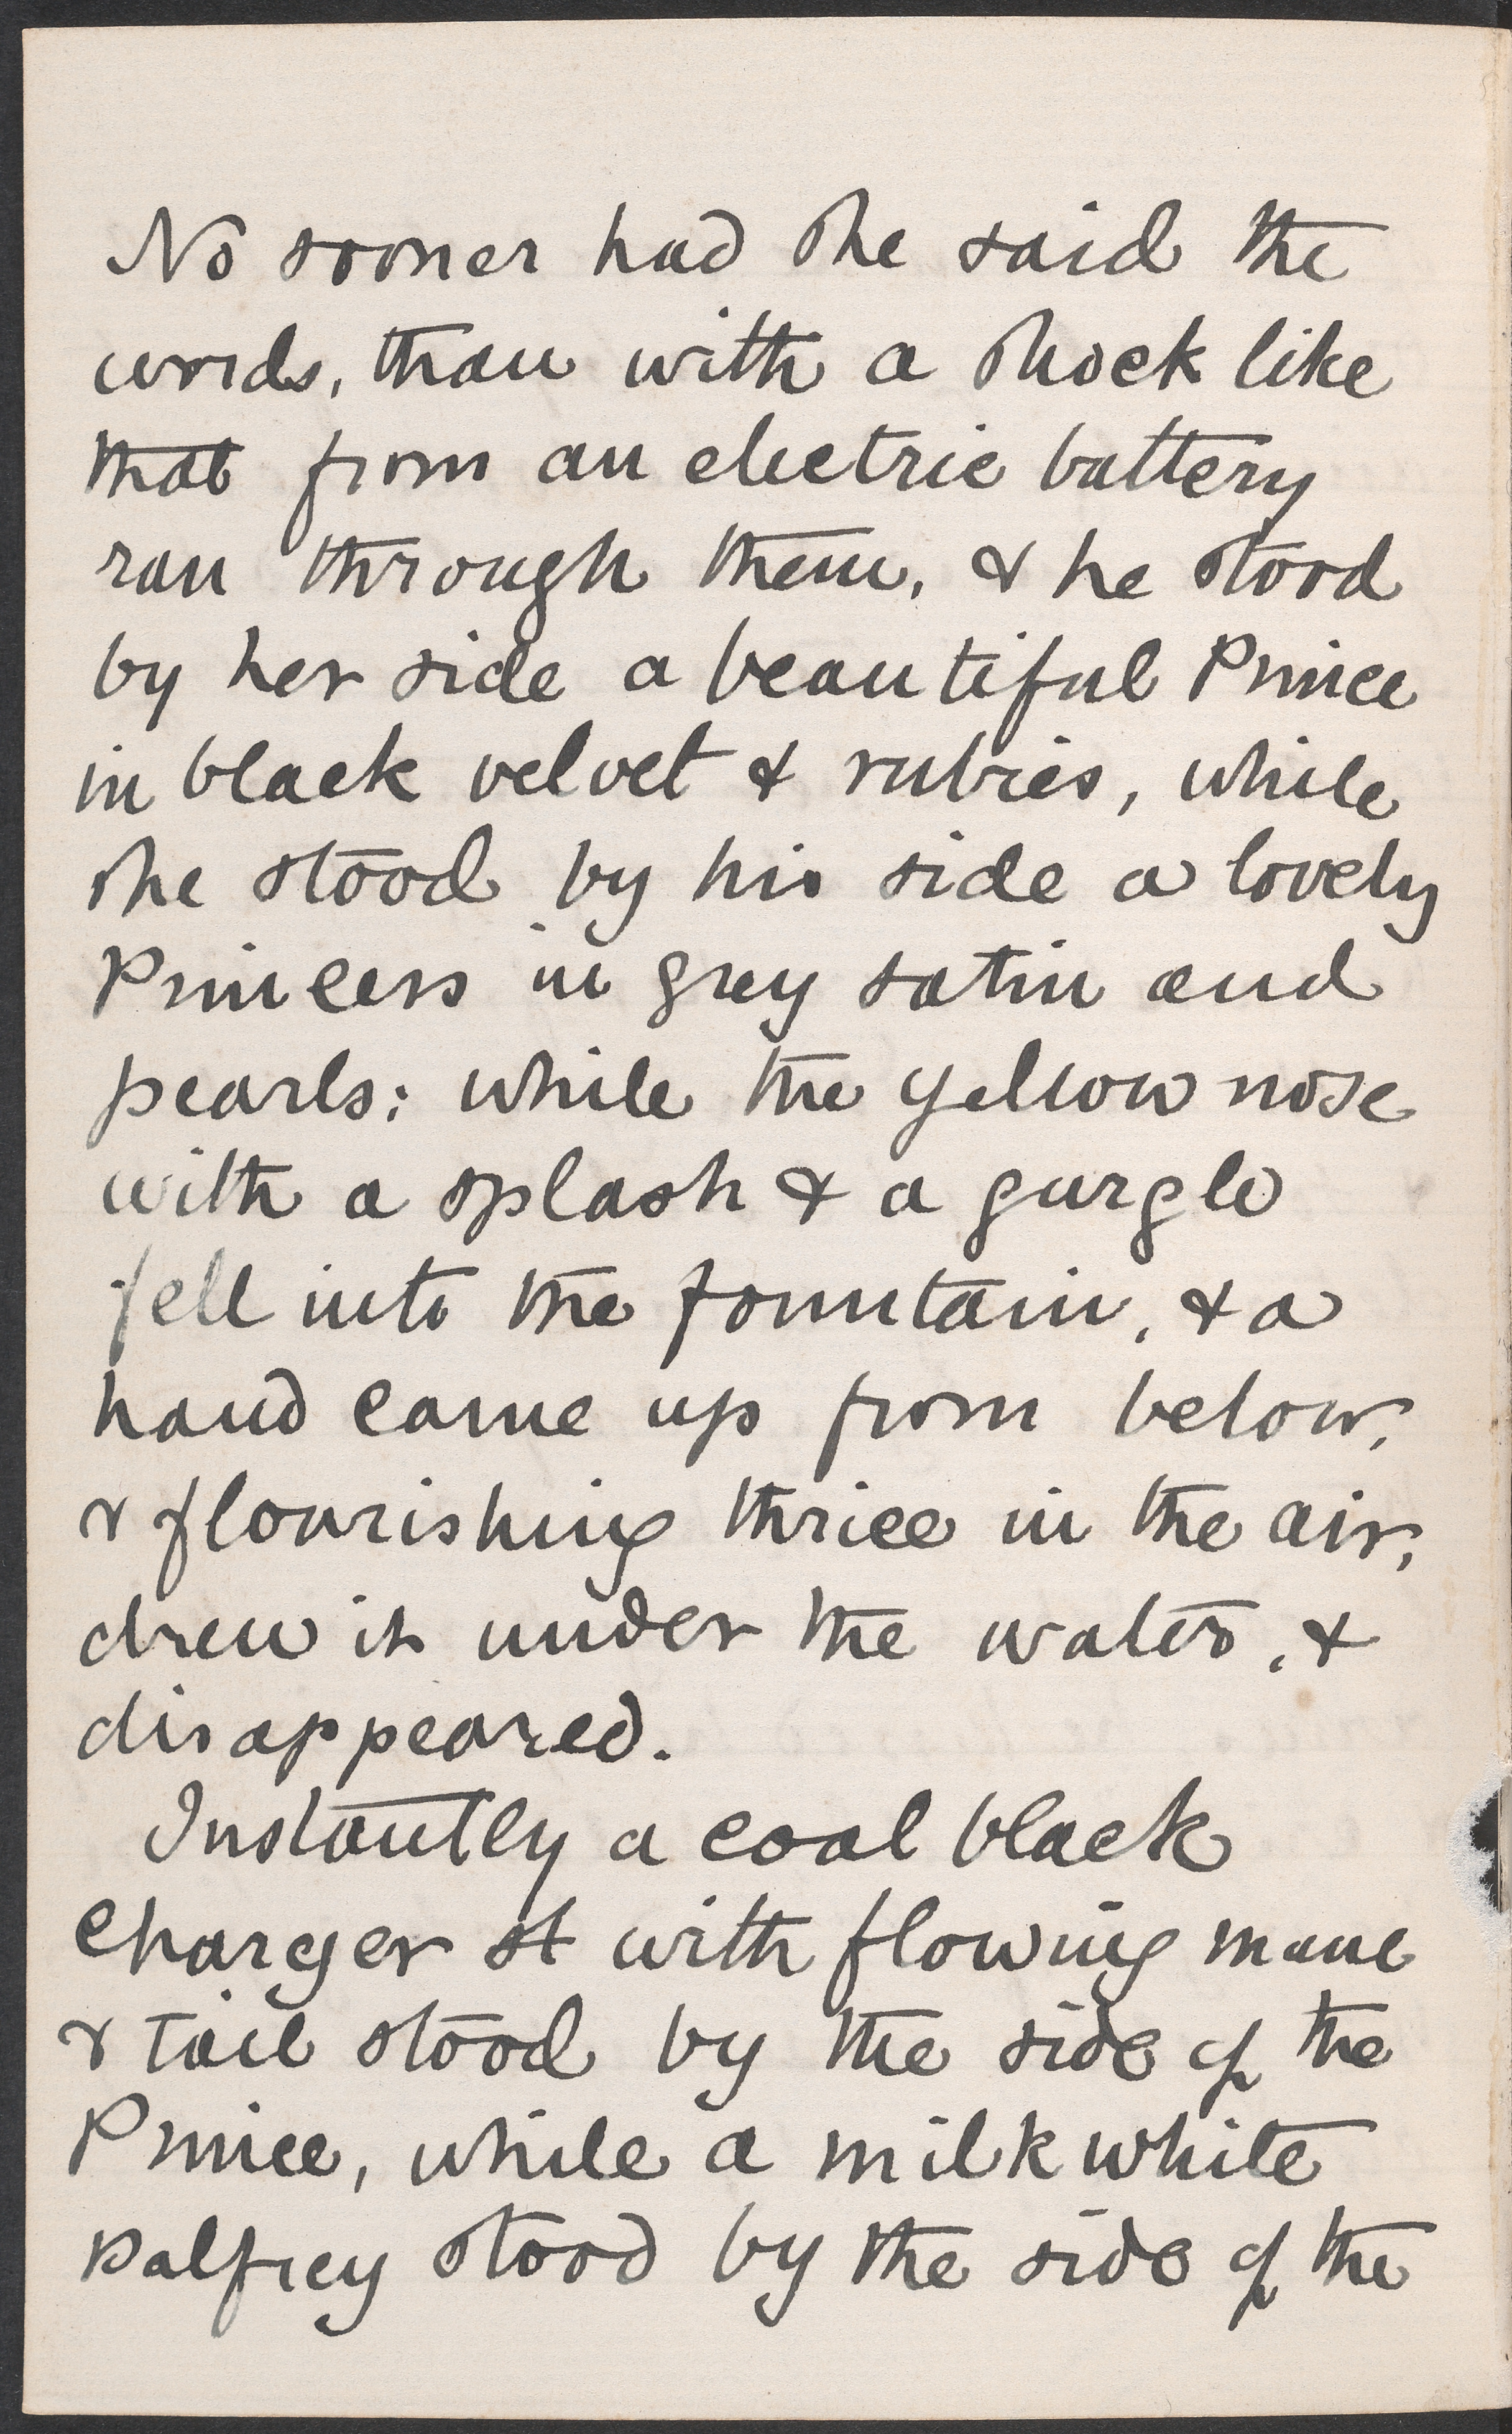 No sooner had she said the
words, than with a shock like
that from an electric battery
ran through them, & he stood
by her side a beautiful Prince
in black velvet & rubies, while
she stood by his side a lovely
Princess in grey satin and
pearls; while the yellow nose
with a splash & a gurgle
fell into the fountain, & a
hand came up from below,
& flourishing thrice in the air,
drew it under the water, &
disappeared.
Instantly a coal black
charger st with flowing mane
& tail stood by the side of the
Prince, while a milk white
palfrey stood by the side of the